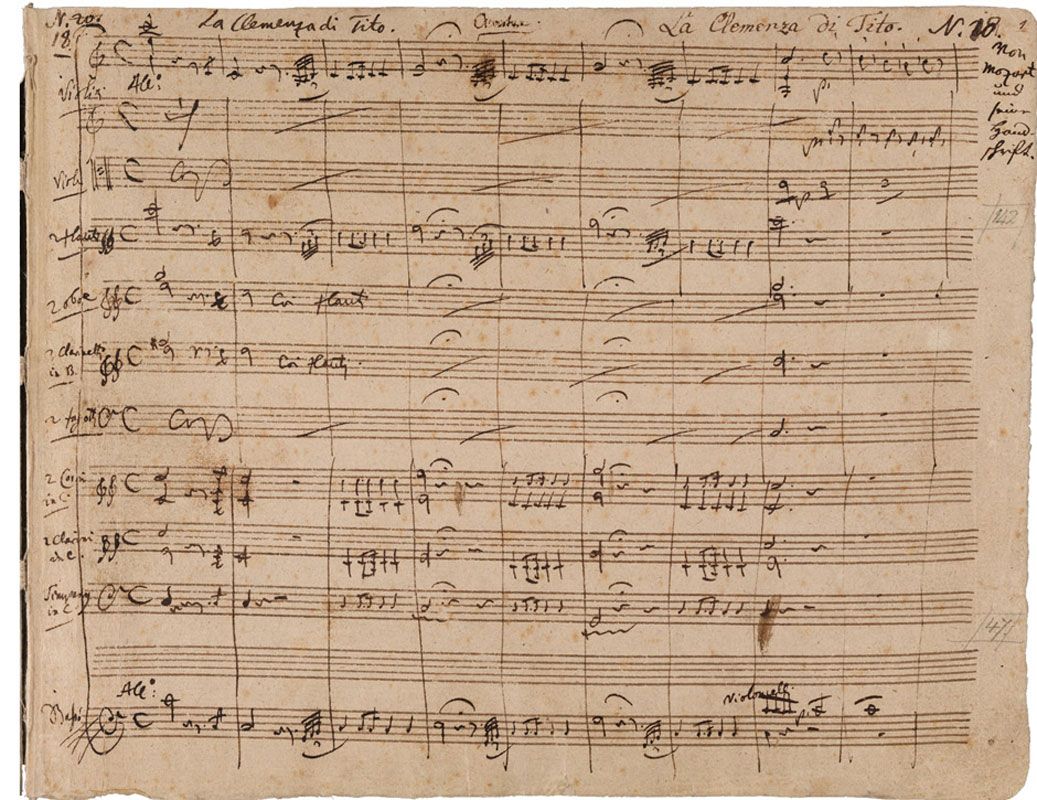 N. 20.
18.
La Clemenza di Tito.
Ouverture.
La Clemenza di Tito.
N. 18.
1
Von
Mozart
und
seiner
Hand-
schrift.
Violin
All:º
Viole
2 flauti
142
2 oboe
Coi flauti
2 Clarinetti
in B.
Coi flauti
2 fagotti
2 Corni
in C
2 Clarini
in C.
Timpany
in C
147
All:º
Violoncelli.
Baßi